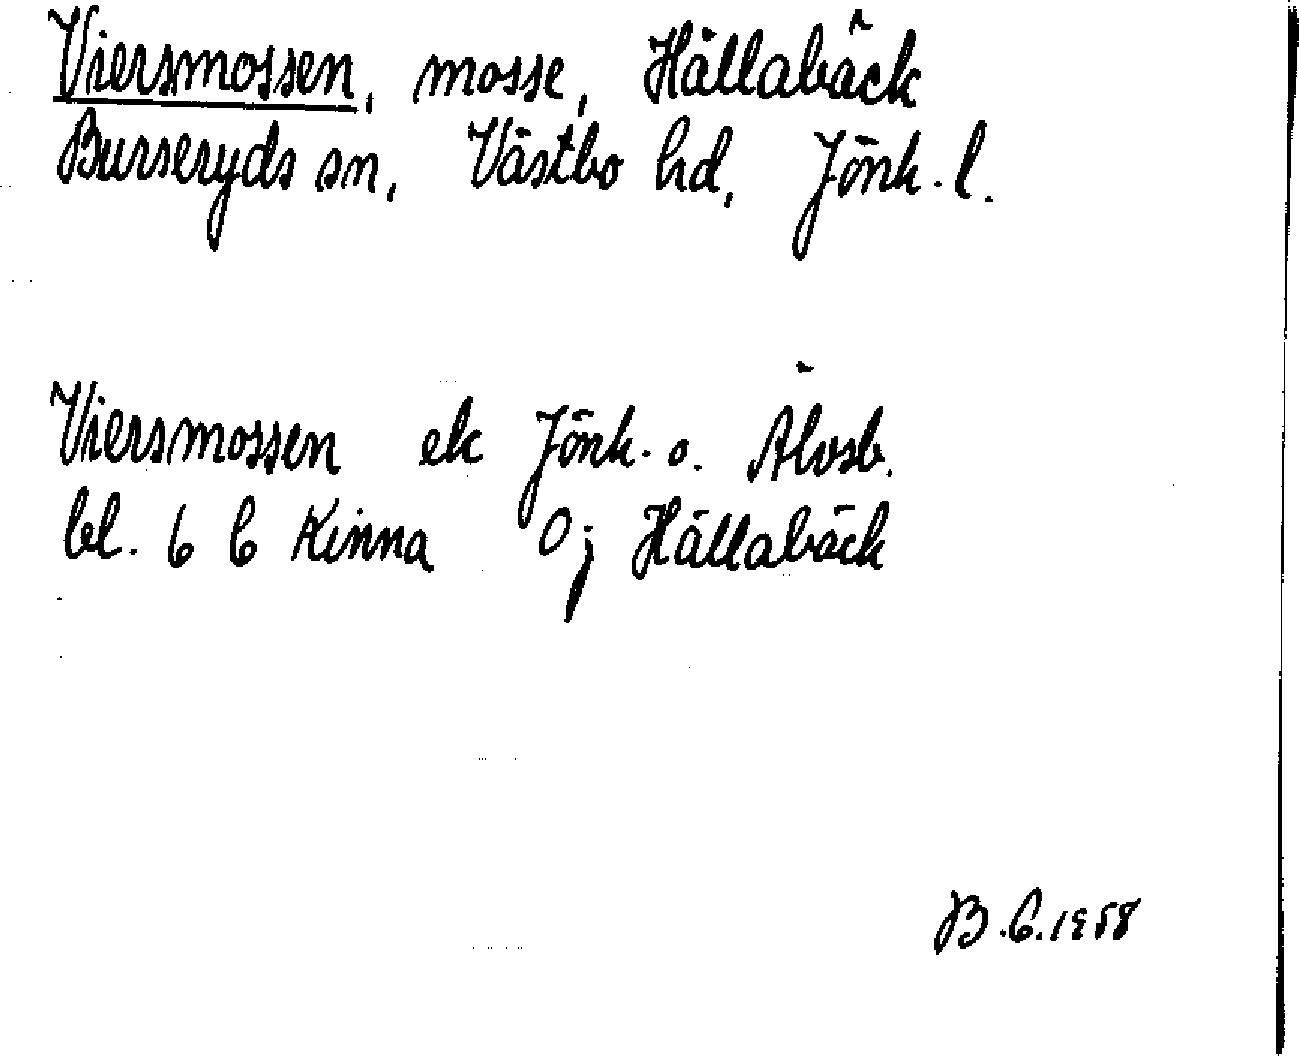 Viersmossen, mosse, Hållabäck
Burseryds sn, Västbo hd, Jönk. l.
Viersmossen ek Jönk. o. Älvsb.
bl. 6 C Kinna Oj Hållabäck
B.C. 1958